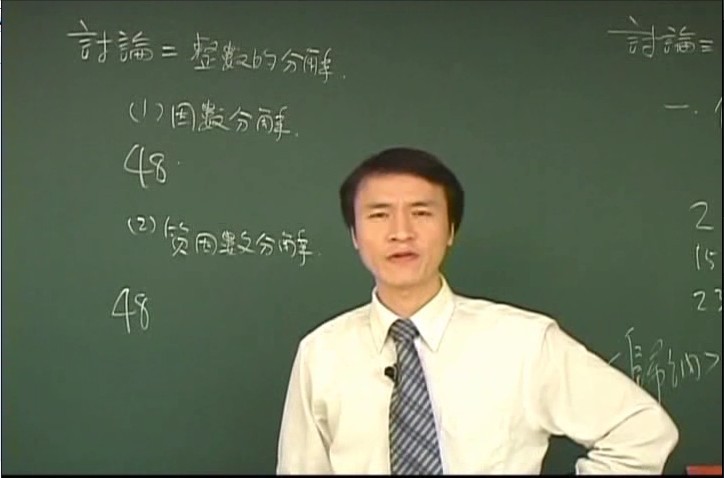 討論=整數的分解.
(1)因數分解.
48
(2)質因數分解.
48
討論=
一.
2
15
23
<歸納>